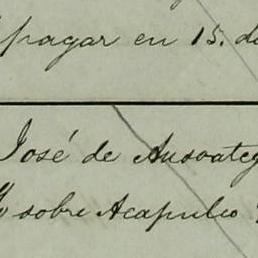 pagar en 15. d
José de Ansoateg
sobre Acapulco